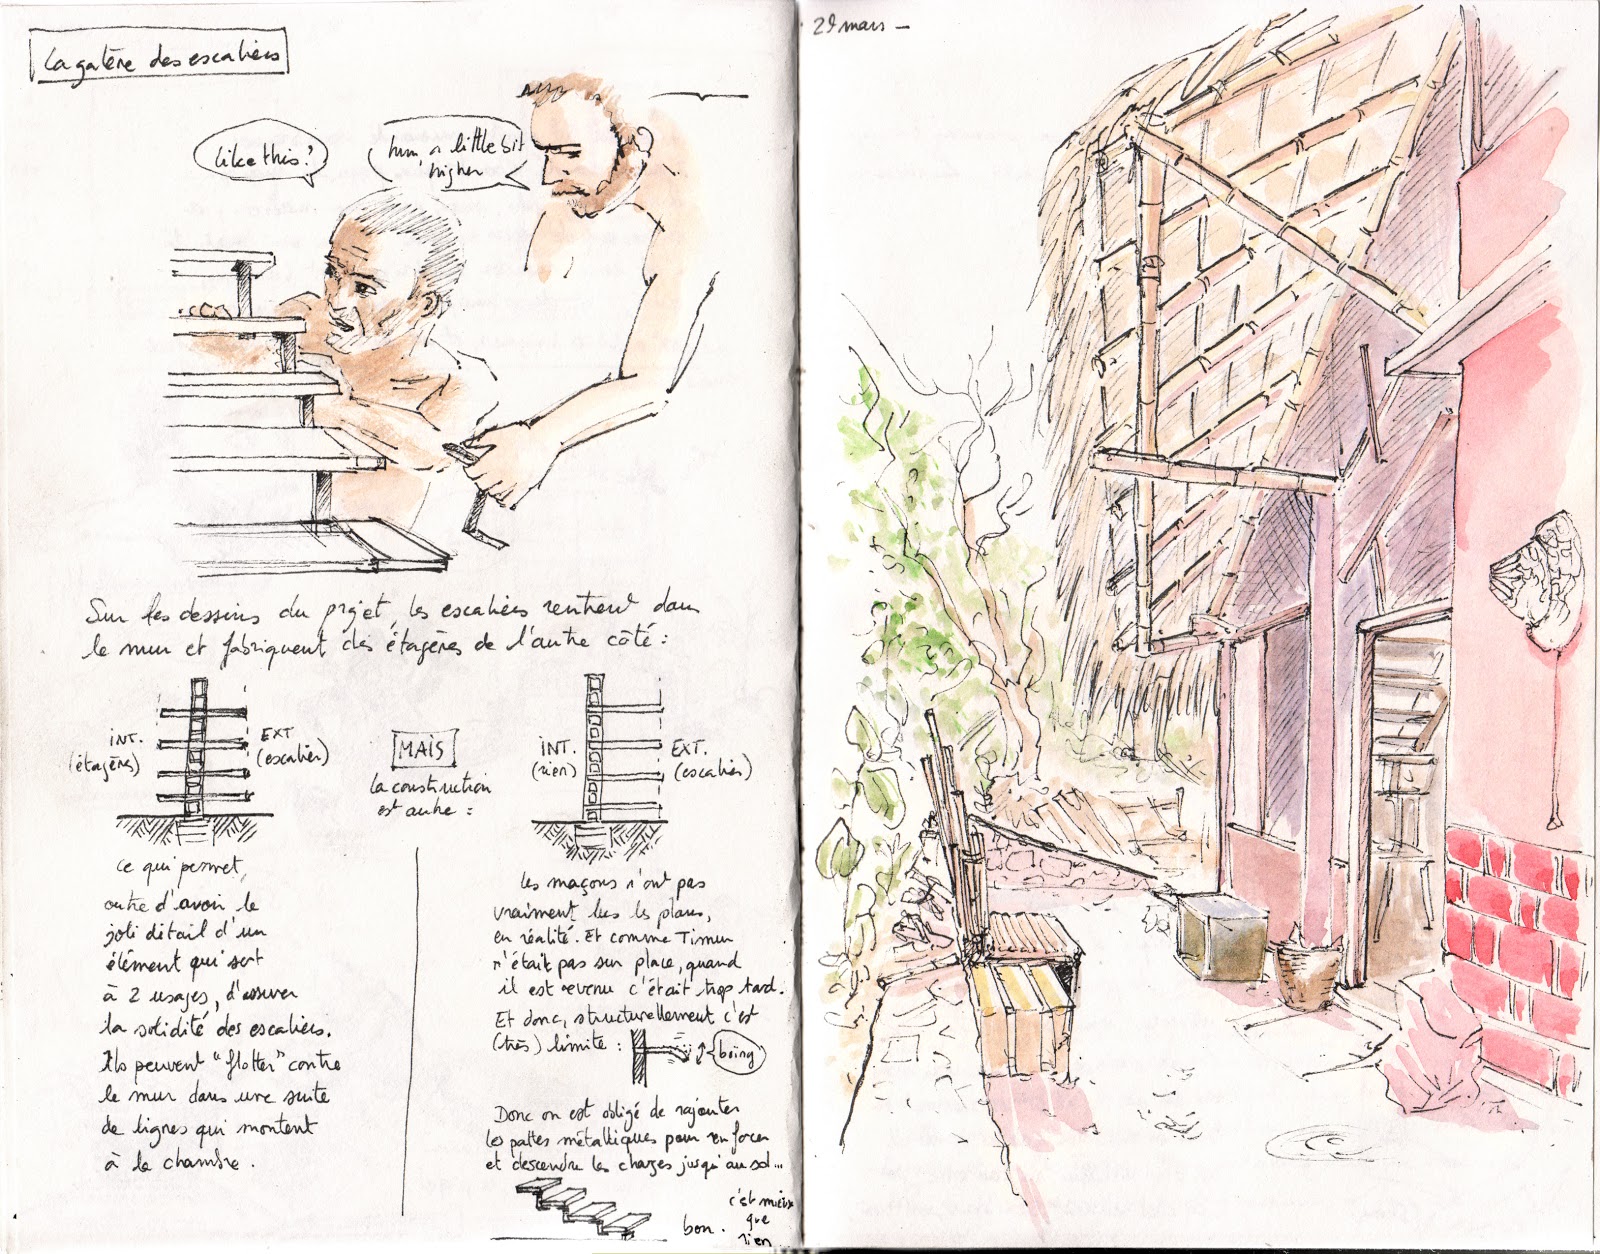 La galère des escaliers
like this?
hum, a little bit
higher
Sur les dessins du projet, les escaliers rentrent dans
le mur et fabriquent des étagères de l'autre côté :
INT.
(étagères)
EXT
(escalier)
MAIS
la construction
est autre :
INT.
(rien)
EXT.
(escalier)
ce qui permet,
outre d'avoir le
joli détail d'un
élément qui sert
à 2 usages, d'assurer
la solidité des escaliers.
Ils peuvent "flotter" contre
le mur dans une suite
de lignes qui montent
à la chambre.
les maçons n'ont pas
vraiment lus les plans,
en réalité. Et comme Timur
n'était pas sur place, quand
il est revenu c'était trop tard.
Et donc, structurellement c'est
(très) limite :
boing
Donc on est obligé de rajouter
les pattes métalliques pour renforcer
et descendre les charges jusqu'au sol...
bon.
c'est mieux
que
rien...
29 mars -